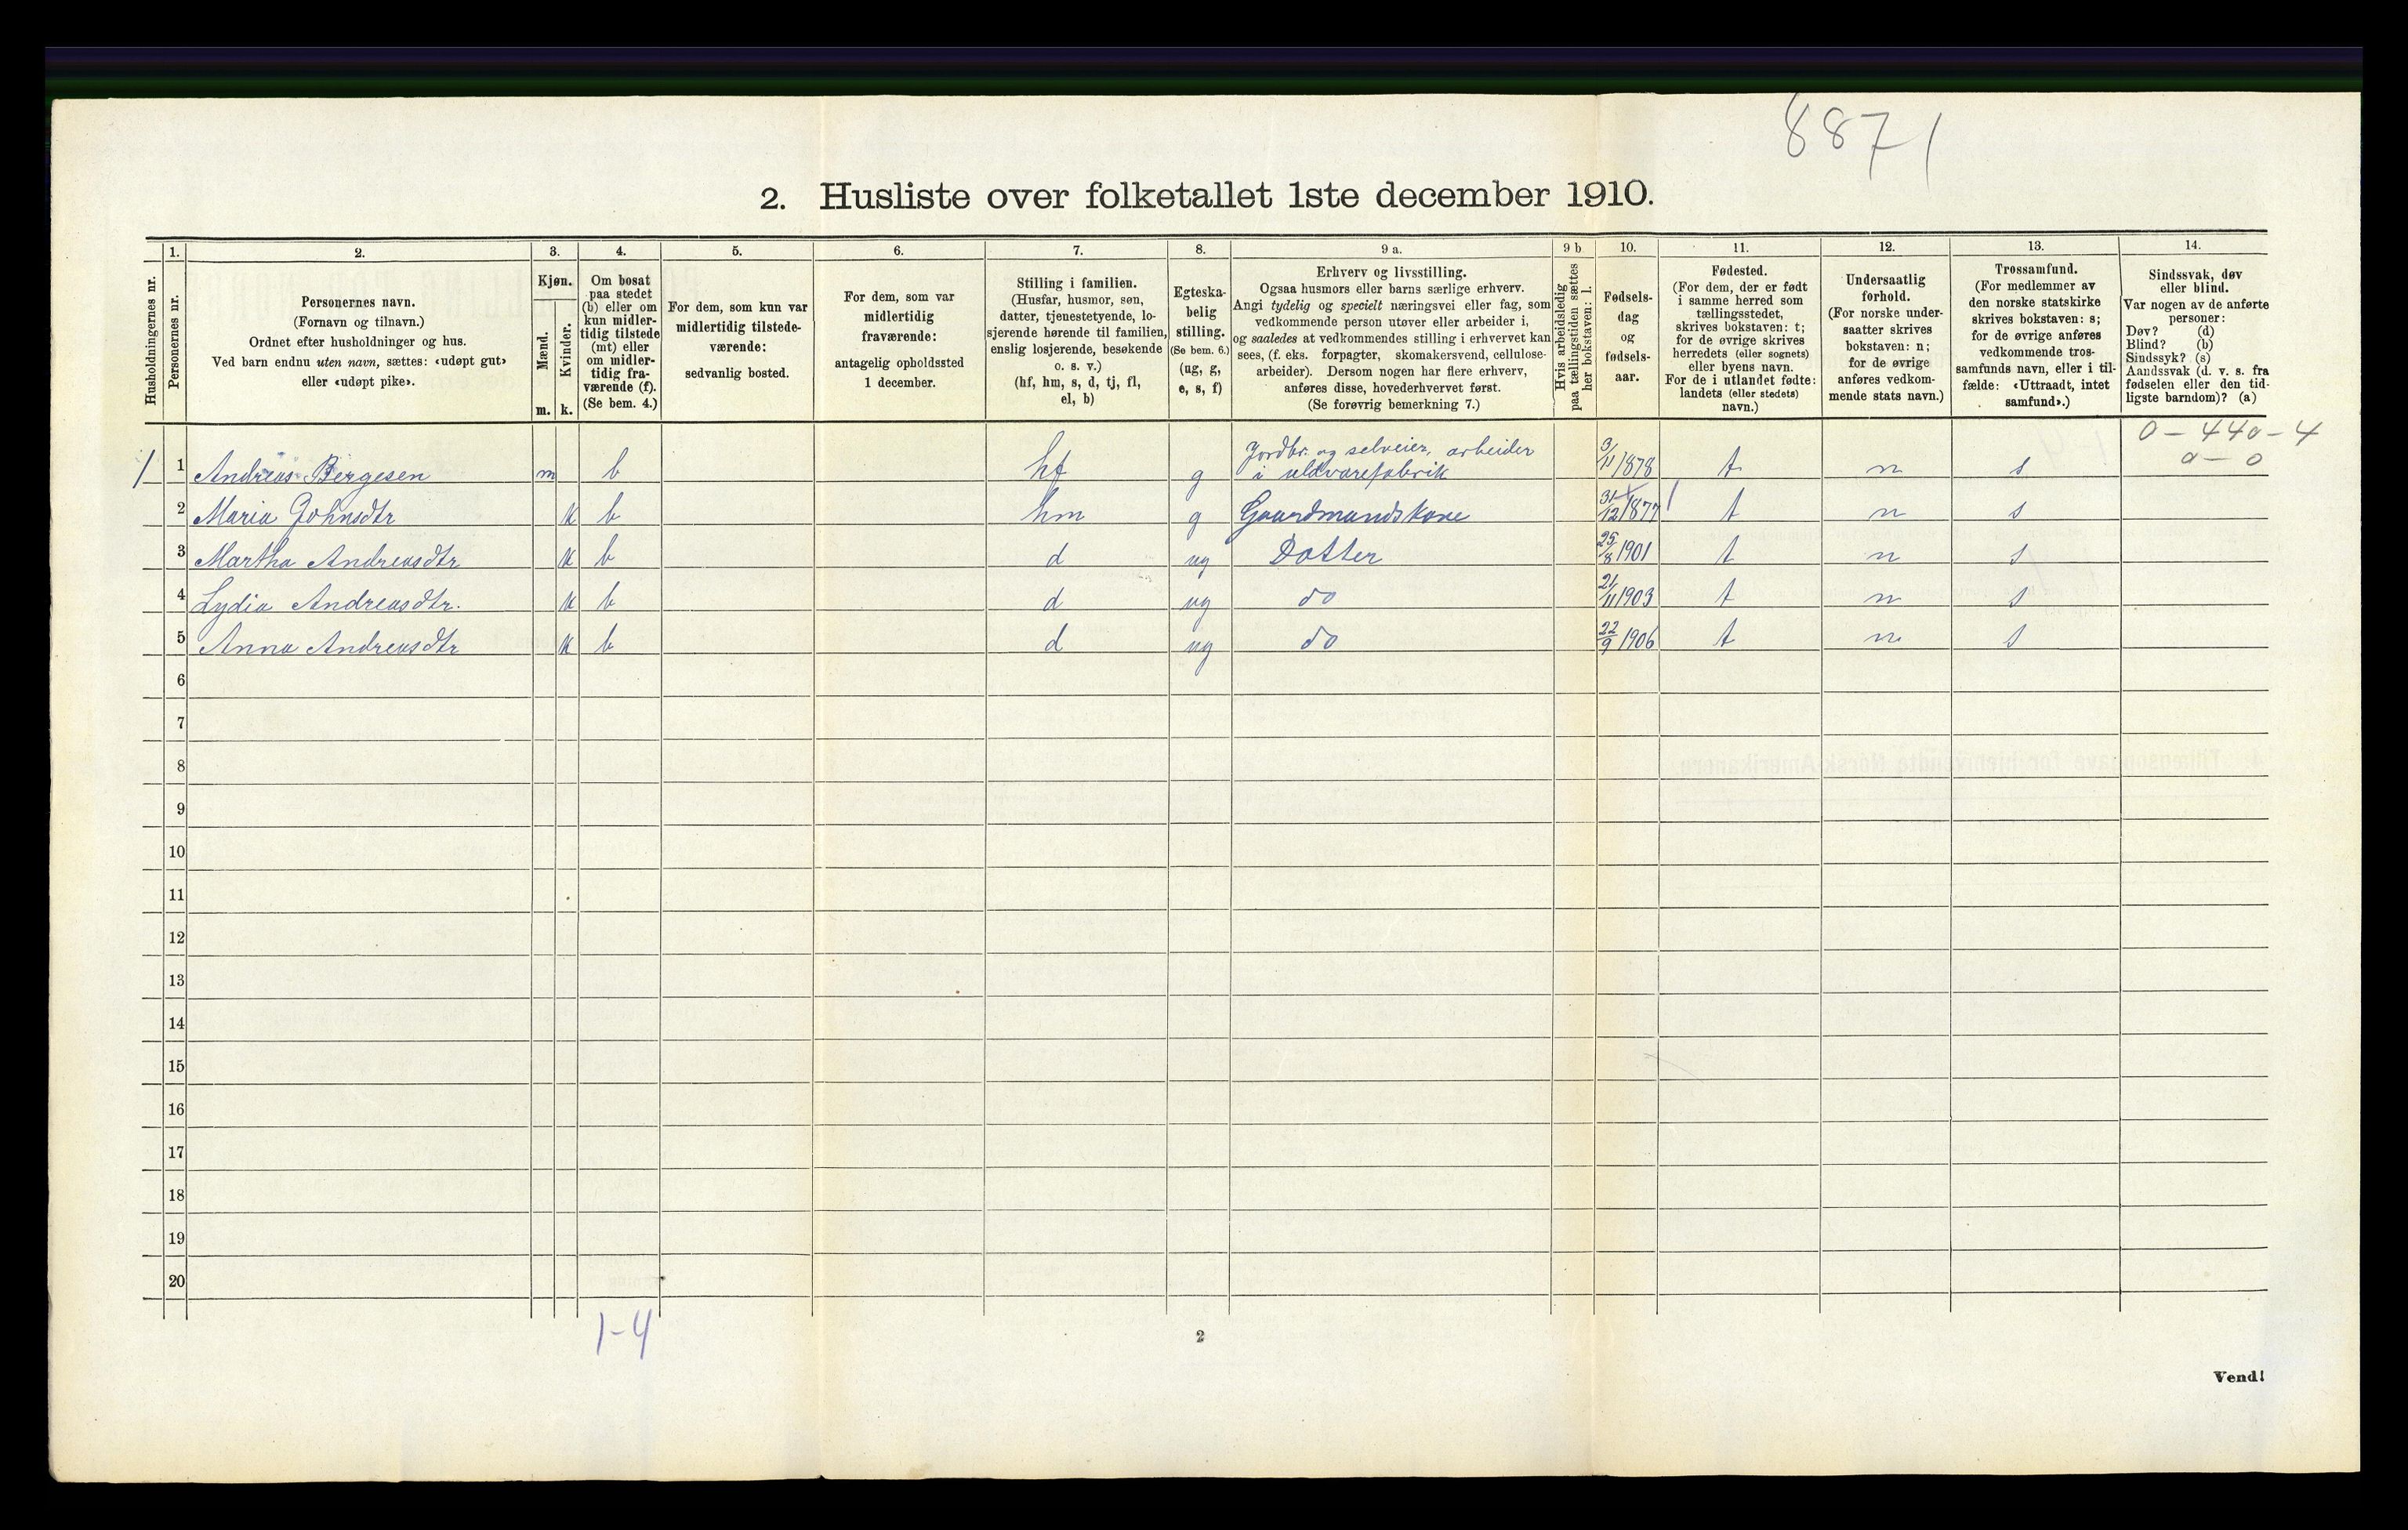 8871
2. Husliste over folketallet 1ste december 1910.
Husholdningernes nr.
1.
Personernes nr.
2.
Personernes navn.
(Fornavn og tilnavn.)
Ordnet efter husholdninger og hus.
Ved barn endnu uten navn, sættes: «udøpt gut»
eller «udøpt pike».
3.
Kjøn.
Mænd.
m.
Kvinder.
k.
4.
Om bosat
paa stedet
(b) eller om
kun midler-
tidig tilstede
(mt) eller
om midler-
tidig fra-
værende (f).
(Se bem. 4.)
5.
For dem, som kun var
midlertidig tilstede-
værende:
sedvanlig bosted.
6.
For dem, som var
midlertidig
fraværende:
antagelig opholdssted
1 december.
7.
Stilling i familien.
(Husfar, husmor, søn,
datter, tjenestetyende, lo-
sjerende hørende til familien,
enslig losjerende, besøkende
o. s. v.)
(hf, hm, s, d, tj, fl,
el, b)
8.
Egteska-
belig
stilling.
(Se bem. 6.)
(ug, g,
e, s, f)
9 a.
Erhverv og livsstilling.
Ogsaa husmors eller barns særlige erhverv.
Angi tydelig og specielt næringsvei eller fag, som
vedkommende person utøver eller arbeider i,
og saaledes at vedkommendes stilling i erhvervet kan
sees, (f. eks. forpagter, skomakersvend, cellulose-
arbeider). Dersom nogen har flere erhverv,
anføres disse, hovederhvervet først.
(Se forøvrig bemerkning 7.)
9 b
Hvis arbeidsledig
paa tællingstiden sættes
her bokstaven: l.
10.
Fødsels-
dag
og
fødsels-
aar.
11.
Fødested.
(For dem, der er født
i samme herred som
tællingsstedet,
skrives bokstaven: t;
for de øvrige skrives
herredets (eller sognets)
eller byens navn.
For de i utlandet fødte:
landets (eller stedets)
navn.)
12.
Undersaatlig
forhold.
(For norske under-
saatter skrives
bokstaven: n;
for de øvrige
anføres vedkom-
mende stats navn.)
13.
Trossamfund.
(For medlemmer av
den norske statskirke
skrives bokstaven: s;
for de øvrige anføres
vedkommende tros-
samfunds navn, eller i til-
fælde: «Uttraadt, intet
samfund».)
14.
Sindssvak, døv
eller blind.
Var nogen av de anførte
personer:
Døv? (d)
Blind? (b)
Sindssyk? (s)
Aandssvak (d. v. s. fra
fødselen eller den tid-
ligste barndom)? (a)
0 - 440 - 4
0 - 0
1 1 Andreas Bergesen m b hf g Jordbr. og selveier, arbeider i uldvarefabrik 3/11 1878 t n s
2 Maria Johnsdtr k b hm g Gaardmandskone 31/12 1877 t n s
3 Martha Andreasdtr k b d ug Datter 25/8 1901 t n s
4 Lydia Andreasdtr. k b d ug do 21/11 1903 t n s
5 Anna Andreasdtr k b d ug do 22/9 1906 t n s
6
7
8
9
10
11
12
13
14
15
16
17
18
19
20
1-4
2
Vend!